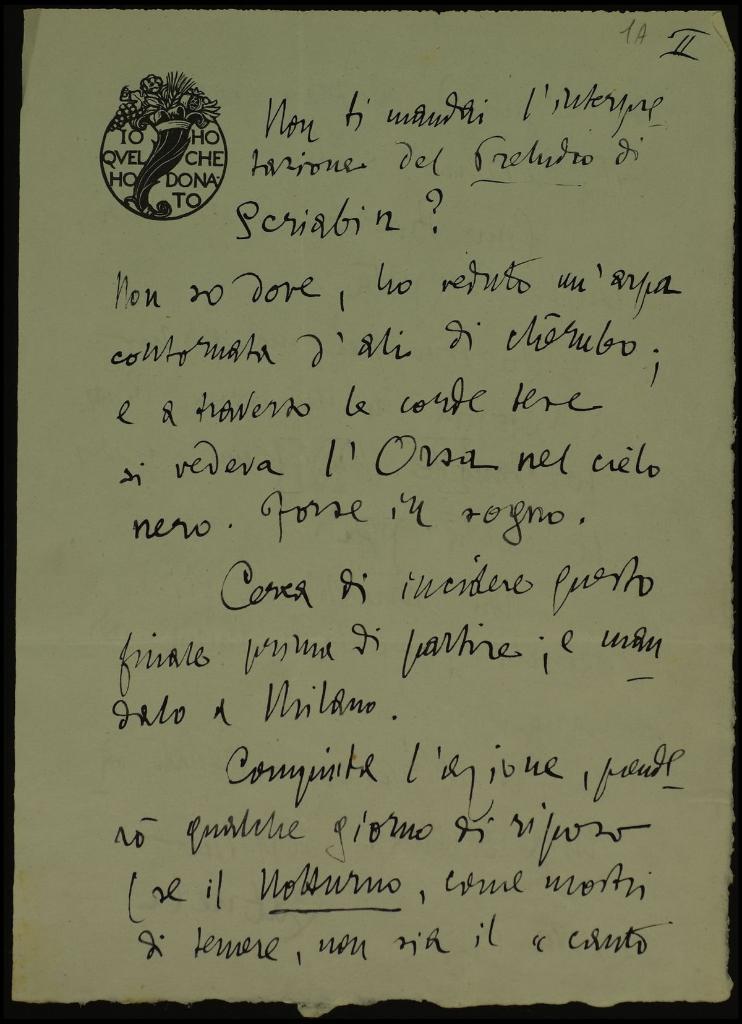 1A II
IO HO
QVEL CHE
HO DONA
TO
Non ti mandai l'interpre
tazione del Preludio di
Scriabin?
Non so dove, ho veduto un'arpa
contornata d'ali di chèrubo;
e a traverso le corde tese
si vedeva l'Orsa nel cielo
nero. Forse in sogno.
Cerca di incidere questo
finale prima di partire; e man
dalo a Milano.
Compiuta l'azione, prende
rò qualche giorno di riposo
(se il Notturno, come mostri
di temere, non sia il « canto